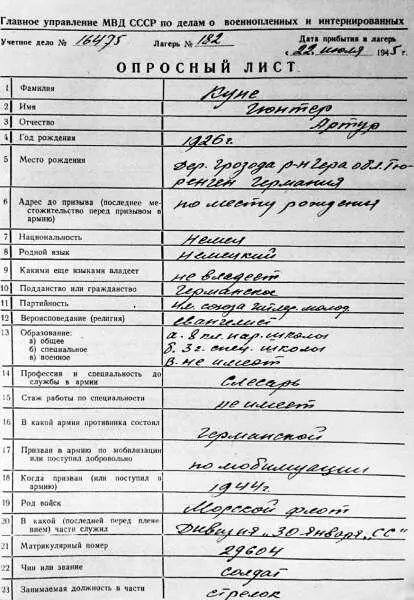 Главное управление МВД СССР по делам о военнопленных и интернированных
Учетное дело № 16475 Лагерь № 182 Дата прибытия в лагерь
с 22 июля 1945 г.
ОПРОСНЫЙ ЛИСТ
1 Фамилия Куне
2 Имя Гюнтер
3 Отчество Артур
4 Год рождения 1926 г.
5 Место рождения Дер. Грозода р-н Гера обл. Тю-
ренген Германия
6 Адрес до призыва (последнее ме- по месту рождения
стожительство перед призывом в
армию)
7 Национальность немец
8 Родной язык немецкий
9 Какими еще языками владеет не владеет
10 Подданство или гражданство Германское
11 Партийность чл. союза гитлер. молод.
12 Вероисповедание (религия) евангелист
13 Образование: а. 8 кл. нар. школы
а) общее б. 3 г. спец. школы
б) специальное в. не имеет
в) военное
14 Профессия и специальность до слесарь
службы в армии
15 Стаж работы по специальности не имеет
16 В какой армии противника состоял Германской
17 Призван в армию по мобилизации по мобилизации
или поступил добровольно
18 Когда призван (или поступил в 1944 г.
армию)
19 Род войск Морской флот
20 В какой (последней перед плене- Дивизия „30 января „СС"
нием) части служил
21 Матрикулярный номер 29604
22 Чин или звание солдат
23 Занимаемая должность в части стрелок